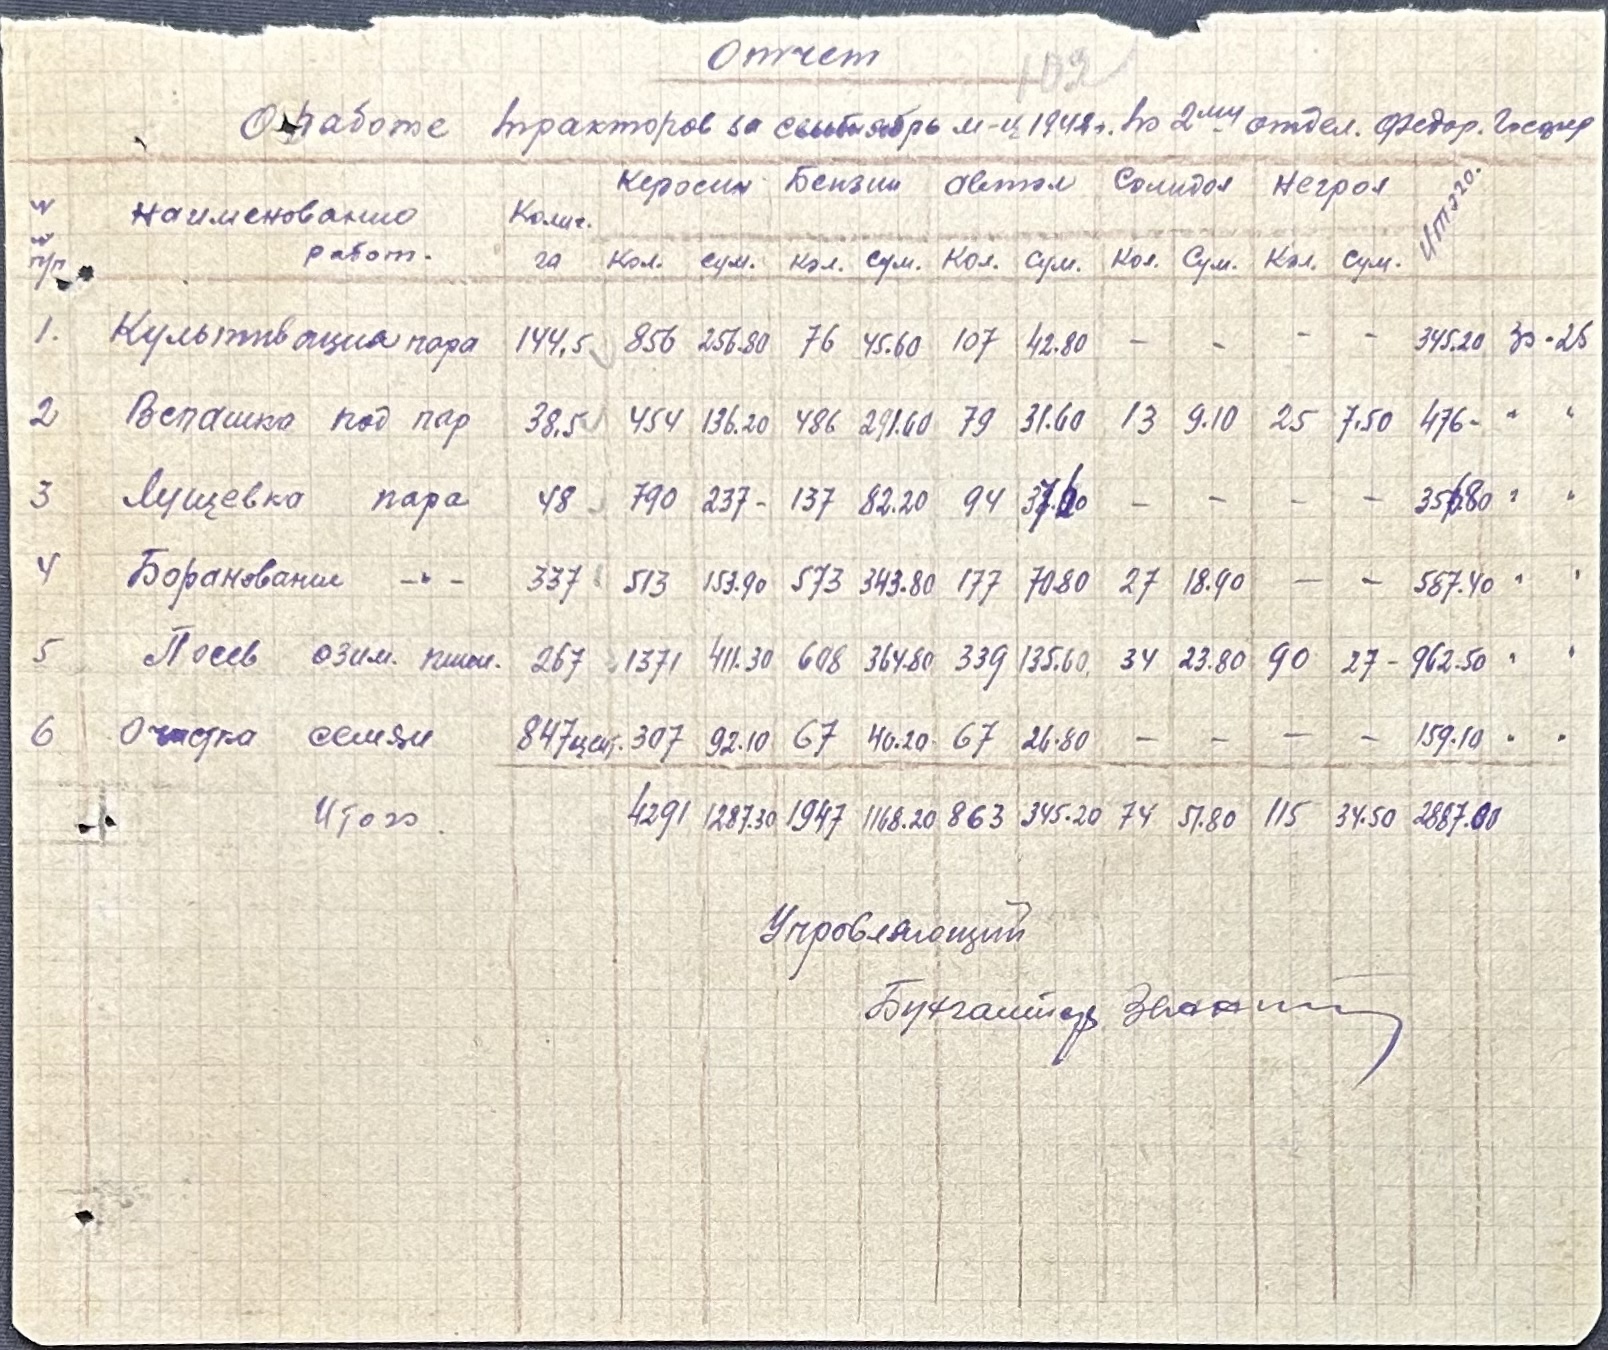 Отчет
О работе тракторов за сентябрь м-ц 1942 г. по 2му отдел. Федор.
Керосин Бензин Автол Солидол Негрол Итого.
№№ п/п Наименование работ. Колич. га Кол. Сум. Кол. Сум. Кол. Сум. Кол. Сум. Кол. Сум.
1. Культивация пара 144,5 856 256.80 76 45.60 107 42.80 – – – – 345.20 30-25
2 Вспашка под пар 38,5 454 136.20 486 291.60 79 31.60 13 9.10 25 7.50 476- " "
3 Лущевка пара 48 790 237- 137 82.20 94 37.60 – – – – 356.80 " "
4 Боранование -"- 337 513 153.90 573 343.80 177 70.80 27 18.90 – – 587.40 " "
5 Посев озим. пшен. 267 1371 411.30 608 364.80 339 135.60 34 23.80 90 27- 962.50 " "
6 Очистка семян 847 цент. 307 92.10 67 40.20 67 26.80 – – – – 159.10 " "
Итого 4291 1287.30 1947 1168.20 863 345.20 74 51.80 115 34.50 2887.00
Управляющий
Бухгалтер